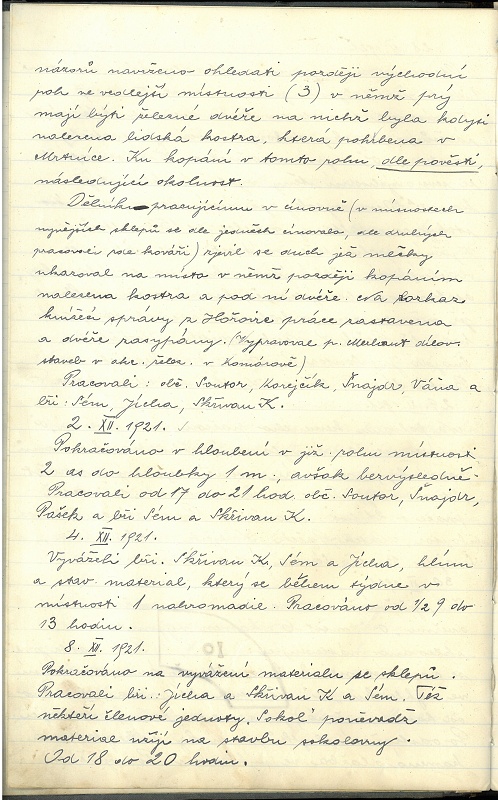 názorů navrženo ohledati později východní
roh ve vedlejší místnosti (3) v němž prý
mají býti železné dvéře na nichž byla kdysi
nalezena lidská kostra, která pohřbena v
Mrtnice. Ku kopání v tomto rohu, dle pověsti,
následující okolnost.
Dělníku pracujícímu v cínovně (v místnostech
nynějších sklepů se dle jedněch cínovalo, dle druhých
pracovali zde kováři) zjevil se duch jež mlčky
ukazoval na místo v němž později kopáním
nalezena kostra a pod ní dvéře. Na rozkaz
knížecí správy z Hořovic práce zastavena
a dvéře zasypány. (Vypravoval p. Merhaut dílov.
staveb v akc. želez. v Komárově)
Pracovali: obč. Soutor, Korejčík, Šnajdr, Váňa a
bři: Sém, Jícha, Skřivan K.
2. XII. 1921.
Pokračováno v hloubení v již. rohu místnosti
2 as do hloubky 1 m., avšak bezvýsledně.
Pracovali od 17 do 21 hod. obč. Soutor, Šnajdr,
Pašek a bři Sém a Skřivan K.
4. XII. 1921.
Vyváželi bři. Skřivan K, Sém a Jícha, hlínu
a stav. material, který se během týdne v
místnosti 1 nahromadil. Pracováno od 1/2 9 do
13 hodin.
8. XII. 1921.
Pokračováno na vyvážení materialu ze sklepů.
Pracovali bři.: Jícha a Skřivan K a Sém. Též
někteří členové jednoty „Sokol" poněvadž
material užijí na stavbu sokolovny.
Od 18 do 20 hodin.